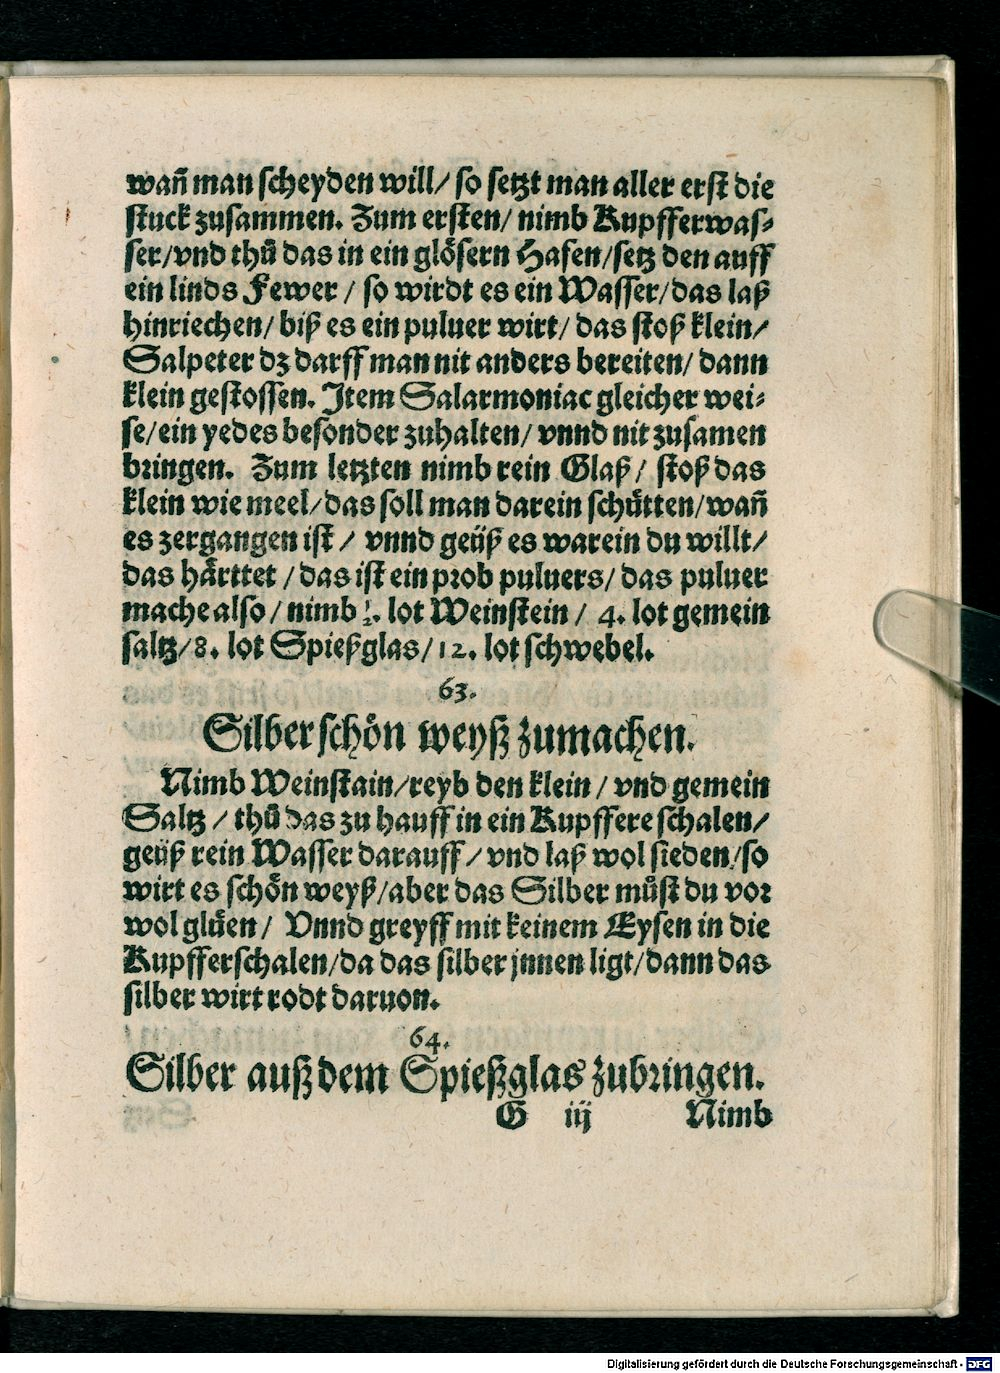 wañ man scheyden will/ so setzt man aller erst die
stuck zusammen. Zum ersten/ nimb Kupfferwas⸗
ser/vnd thů das in ein glösern Hafen/setz den auff
ein linds Fewer / so wirdt es ein Wasser/das laß
hinriechen/ biß es ein puluer wirt/ das stoß klein/
Salpeter dz darff man nit anders bereiten/ dann
klein gestossen. Item Salarmoniac gleicher wei⸗
se/ein yedes besonder zuhalten/ vnnd nit zusamen
bringen. Zum letzten nimb rein Glaß/ stoß das
klein wie meel/das soll man darein schütten/wañ
es zergangen ist / vnnd geüß es warein du willt/
das härttet / das ist ein prob puluers/ das puluer
mache also/ nimb ½. lot Weinstein / 4. lot gemein
saltz/8. lot Spießglas/12. lot schwebel.
63.
Silber schön weyß zumachen.
Nimb Weinstain/reyb den klein / vnd gemein
Saltz / thů das zu hauff in ein Kupffere schalen/
geüß rein Wasser darauff / vnd laß wol sieden/so
wirt es schön weyß/aber das Silber můst du vor
wol glüen/ Vnnd greyff mit keinem Eysen in die
Kupfferschalen/da das silber jnnen ligt/dann das
silber wirt rodt daruon.
64.
Silber auß dem Spießglas zubringen.
G iij Nimb
Digitalisierung gefördert durch die Deutsche Forschungsgemeinschaft - DFG